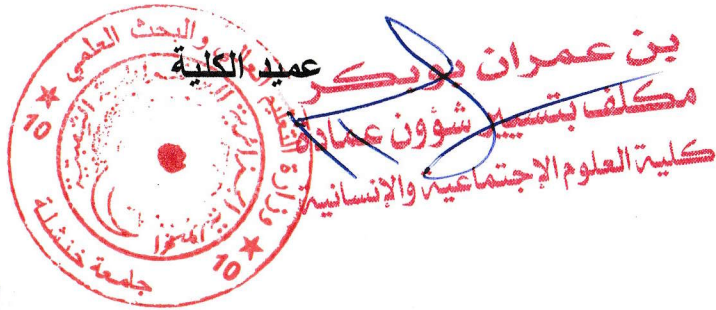 عميد الكلية
بن عمران بوبكر
مكلف بتسيير شؤون عمادة
كلية العلوم الإجتماعية والإنسانية
وزارة التعليم العالي والبحث العلمي
جامعة خنشلة
10
10